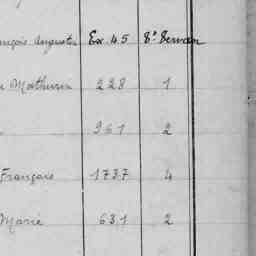 ançois Augustin Ex. 45 8e Servan
n Mathurin 228 1
961 2
François 1737 4
Marie 631 2